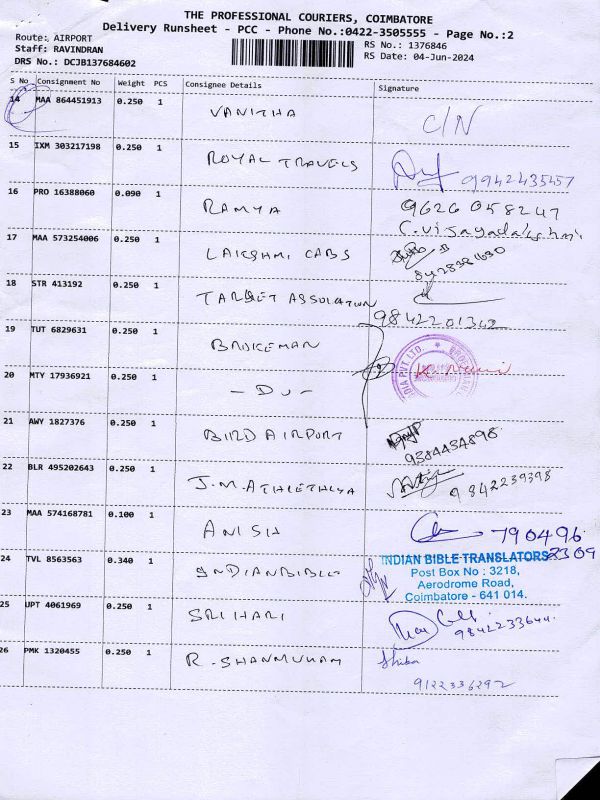 THE PROFESSIONAL COURIERS, COIMBATORE
Delivery Runsheet - PCC - Phone No.:0422-3505555 - Page No.:2
Route: AIRPORT
Staff: RAVINDRAN
DRS No.: DCJB137684602
RS No.: 1376846
RS Date: 04-Jun-2024
S No Consignment No Weight PCS Consignee Details Signature
14 MAA 864451913 0.250 1 VANITHA C/N
15 IXM 303217198 0.250 1 ROYAL TRAVELS 9942435457
16 PRO 16388060 0.090 1 RAMYA 9626058247
C. vijayadalkshmi
17 MAA 573254006 0.250 1 LAKSHMI CABS
18 STR 413192 0.250 1 TARGET ASSOLATION
9842201342
19 TUT 6829631 0.250 1 BROKEMAN
20 MTY 17936921 0.250 1 - DO -
21 AWY 1827376 0.250 1 BIRD AIRPORT 9384434898
22 BLR 495202643 0.250 1 J.M. ATHLETHLYA 9842239398
23 MAA 574168781 0.100 1 ANISH 790496
2309
24 TVL 8563563 0.340 1 INDIANBIBLE
INDIAN BIBLE TRANSLATORS
Post Box No : 3218,
Aerodrome Road,
Coimbatore - 641 014.
25 UPT 4061969 0.250 1 SRI HARI 9842233644
26 PMK 1320455 0.250 1 R. SHANMUKAM Shiba
9122336292